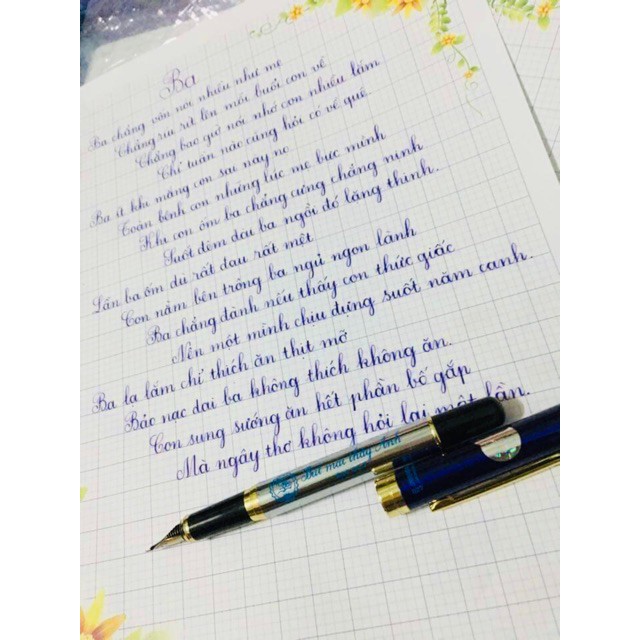 Ba
Ba chẳng vốn nói nhiều như mẹ
Chẳng ríu rít lên mỗi buổi con về
Chẳng bao giờ nói nhớ con nhiều lắm
Chỉ tuần nào cũng hỏi có về quê.
Ba ít khi mắng con sai này nọ
Toàn bênh con những lúc mẹ bực mình
Khi con ốm ba chẳng cưng chẳng nịnh
Suốt đêm dài ba ngồi đó lặng thinh.
Lần ba ốm dù rất đau rất mệt
Con nằm bên trông ba ngủ ngon lành
Ba chẳng đành nếu thấy con thức giấc
Nên một mình chịu đựng suốt năm canh.
Ba lạ lắm chỉ thích ăn thịt mỡ
Bảo nạc dai ba không thích không ăn.
Con sung sướng ăn hết phần bố gắp
Mà ngây thơ không hỏi lại một lần.
Bút mài thầy Ánh